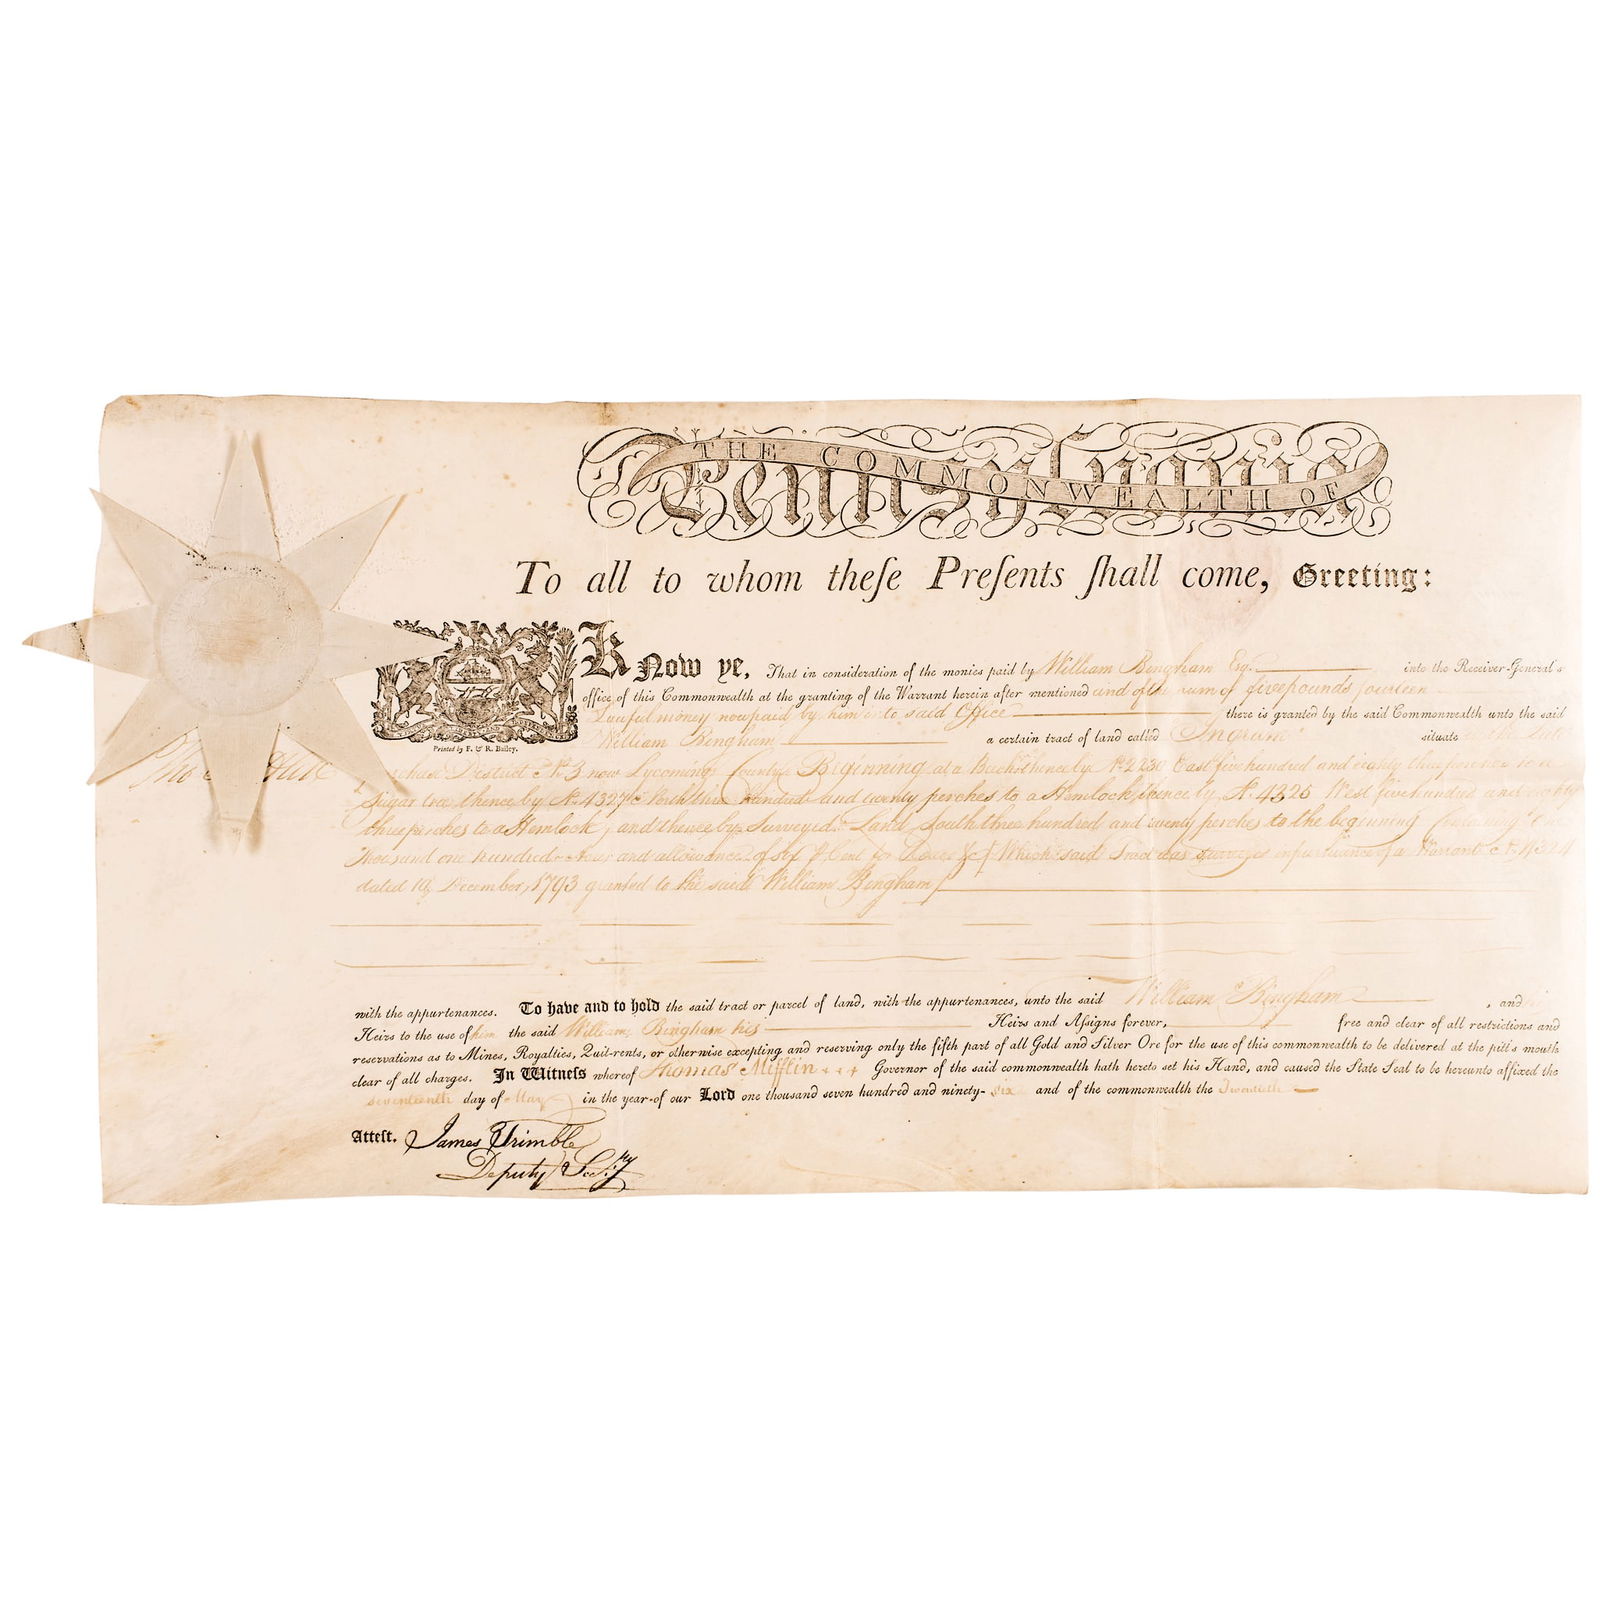 THE COMMONWEALTH OF
Pennsylvania
To all to whom theſe Preſents ſhall come, Greeting:
Know ye, That in consideration of the monies paid by William Bingham Esq. into the Receiver-General's
office of this Commonwealth at the granting of the Warrant herein after mentioned and of the sum of five pounds fourteen
Lawful money now paid by him into said Office there is granted by the said Commonwealth unto the said
William Bingham a certain tract of land called "Ingram" situate in the late
Printed by F. & R. Bailey.
Purchase District No. 3 now Lycoming County Beginning at a Beech thence by No. 2230 East five hundred and eighty three perches to a
Sugar tree thence by No. 4327 North three hundred and twenty perches to a Hemlock, thence by No. 4325 West five hundred and eighty
three perches to a Hemlock, and thence by Surveyed Land South three hundred and twenty perches to the beginning Containing One
thousand one hundred Acres and allowance of six P Cent for Roads &c. Which said Tract was surveyed in pursuance of a Warrant No. 4324
dated 10 December, 1793 granted to the said William Bingham
with the appurtenances. To have and to hold the said tract or parcel of land, with the appurtenances, unto the said William Bingham, and
Heirs to the use of him the said William Bingham his Heirs and Aſsigns forever, free and clear of all restrictions and
reservations as to Mines, Royalties, Quit-rents, or otherwise excepting and reserving only the fifth part of all Gold and Silver Ore for the use of this commonwealth to be delivered at the pit's mouth
clear of all charges. In Witneſs whereof Thomas Mifflin Governor of the said commonwealth hath hereto set his Hand, and caused the State Seal to be hereunto affixed the
seventeenth day of May in the year of our Lord one thousand seven hundred and ninety-six and of the commonwealth the Twentieth
Atteſt. James Trimble
Deputy Secry